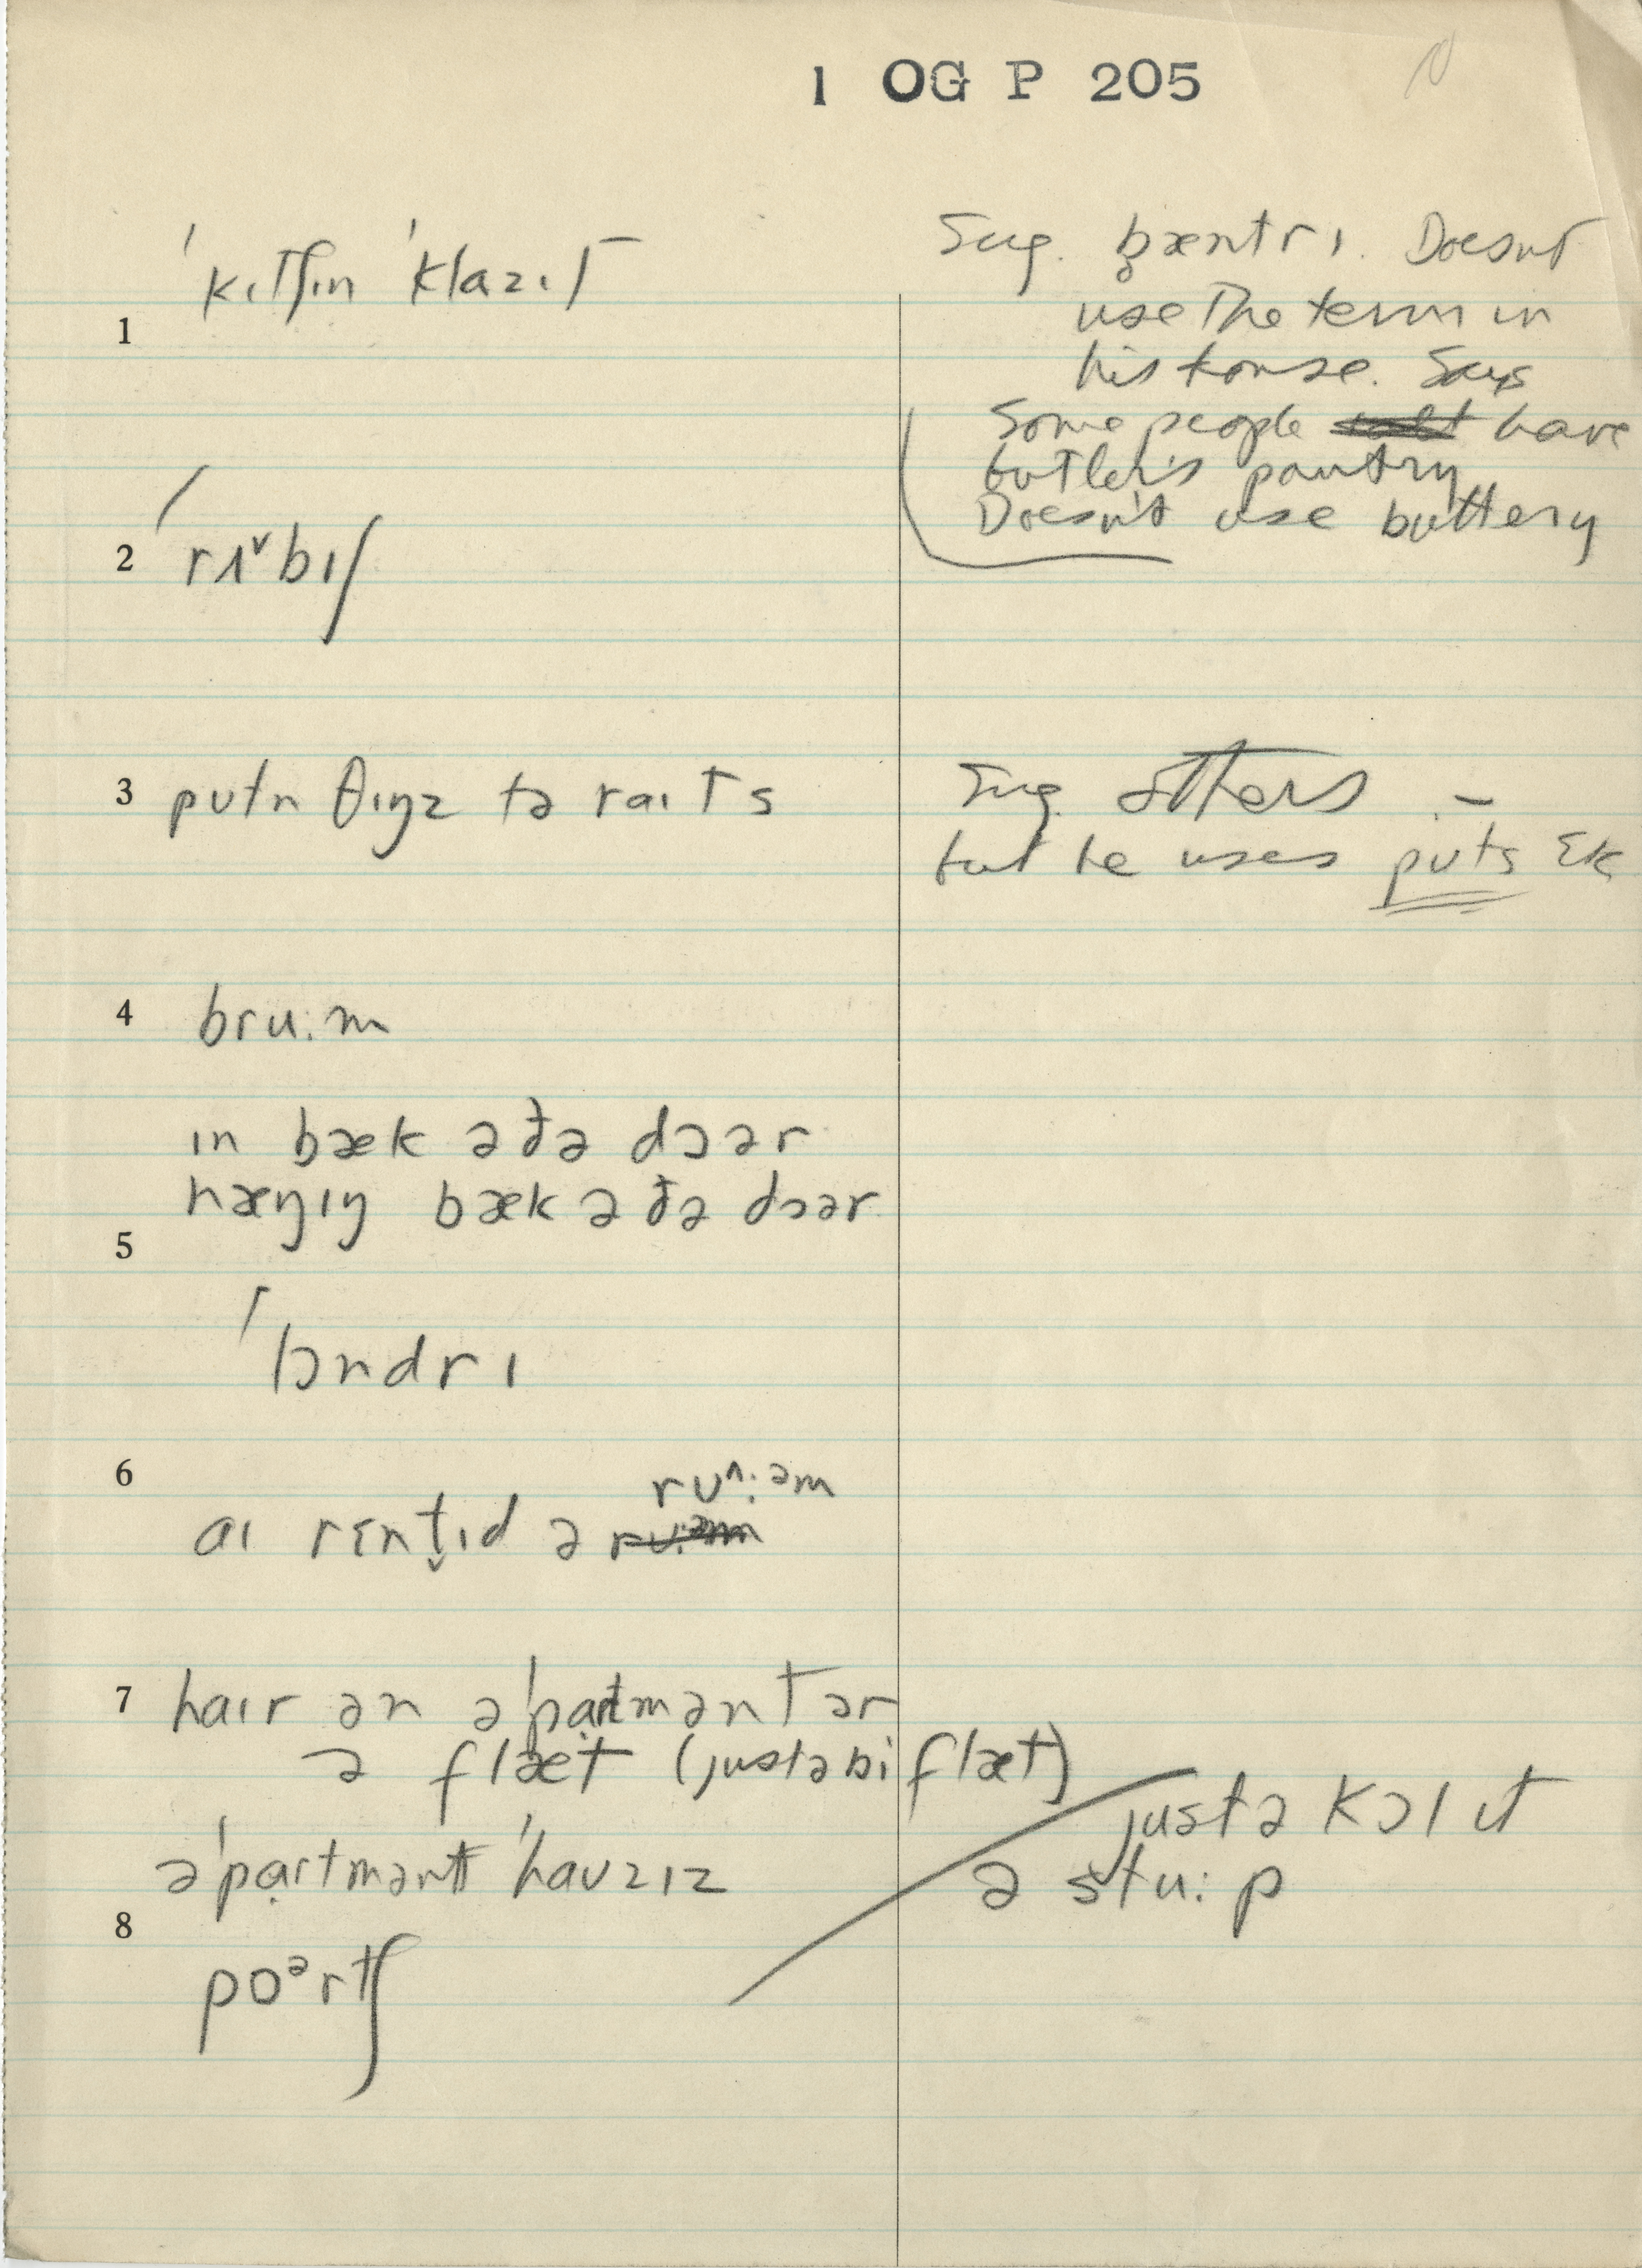 1 OG P 205
1 ˈkɪtʃɪn ˈklazɪt
Sug. b̥æntrɪ. Doesnt
use the term in
his house. Says
Some people have
butler's pantry
Doesn't use buttery
2 ˈrʌ˅bɪʃ
3 putn θɪŋz tə raɪts
Sug. others –
but he uses puts ɛk
4 bru:m
ɪn bæk ə ðə dɔər
5 hæŋɪŋ bæk ə ðə dɔər
ˈlɔndrɪ
6 ru^:əm
aɪ rɛnt̬ɪd ə
7 haɪr ən əˈpartmənt ər
ə flæt (justəbi flæt)
justə kɔl ɪt
əˈpartmənt ˈhauzɪz
ə stu:p
8 poᵊrtʃ